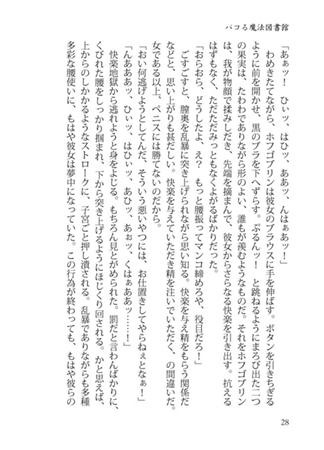 パコろ魔法図書館
「あぁッ!　ひぃッ、はひッ、ああッ、んはぁあッ!」
わめきたてながら、ホブゴブリンは彼女のブラウスに手を伸ばす。ボタンを引きちぎる
ように前を開かせ、黒のブラを下へずらす。ぷるんッ!　と跳ねるようにまろび出た二つ
の果実は、たわわでありながら形のよい、誰もが羨むようなものだ。それをホフゴブリン
は、我が物顔で揉みしだき、先端を摘まんで、彼女からさらなる快楽を引き出す。抗える
はずもなく、ただただみっともなくよがるばかりだった。
「おらおら、どうしたよ、え?　もっと腰振ってマンコ締めろや、役目だろ!」
ごすごすと、膣奥を乱暴に突き上げられながら思い知る。快楽を与え精をもらう関係だ
などと、思い上がりも甚だしい。快楽を与えていただき精を注いでいただく、の間違いだ。
女である以上、ペニスには勝てないのだから。
「おい何逃げようとしてんだ、そういう悪いやつには、お仕置きしてやらねぇとなぁ!」
「んああああッ、ひぃッ、はひッ、あぉッ、くはぁああッ……!」
快楽地獄から逃れようと身をよじる。もちろん見とがめられた。罰だと言わんばかりに、
くびれた腰をしっかり掴まれ、下から突き上げるようにほじくり回される。かと思えば、
上からのしかかるようなストロークに、子宮ごと押し潰される。乱暴でありながらも多種
多彩な腰使いに、もはや彼女は夢中になっていた。この行為が終わっても、もはや彼らの
28